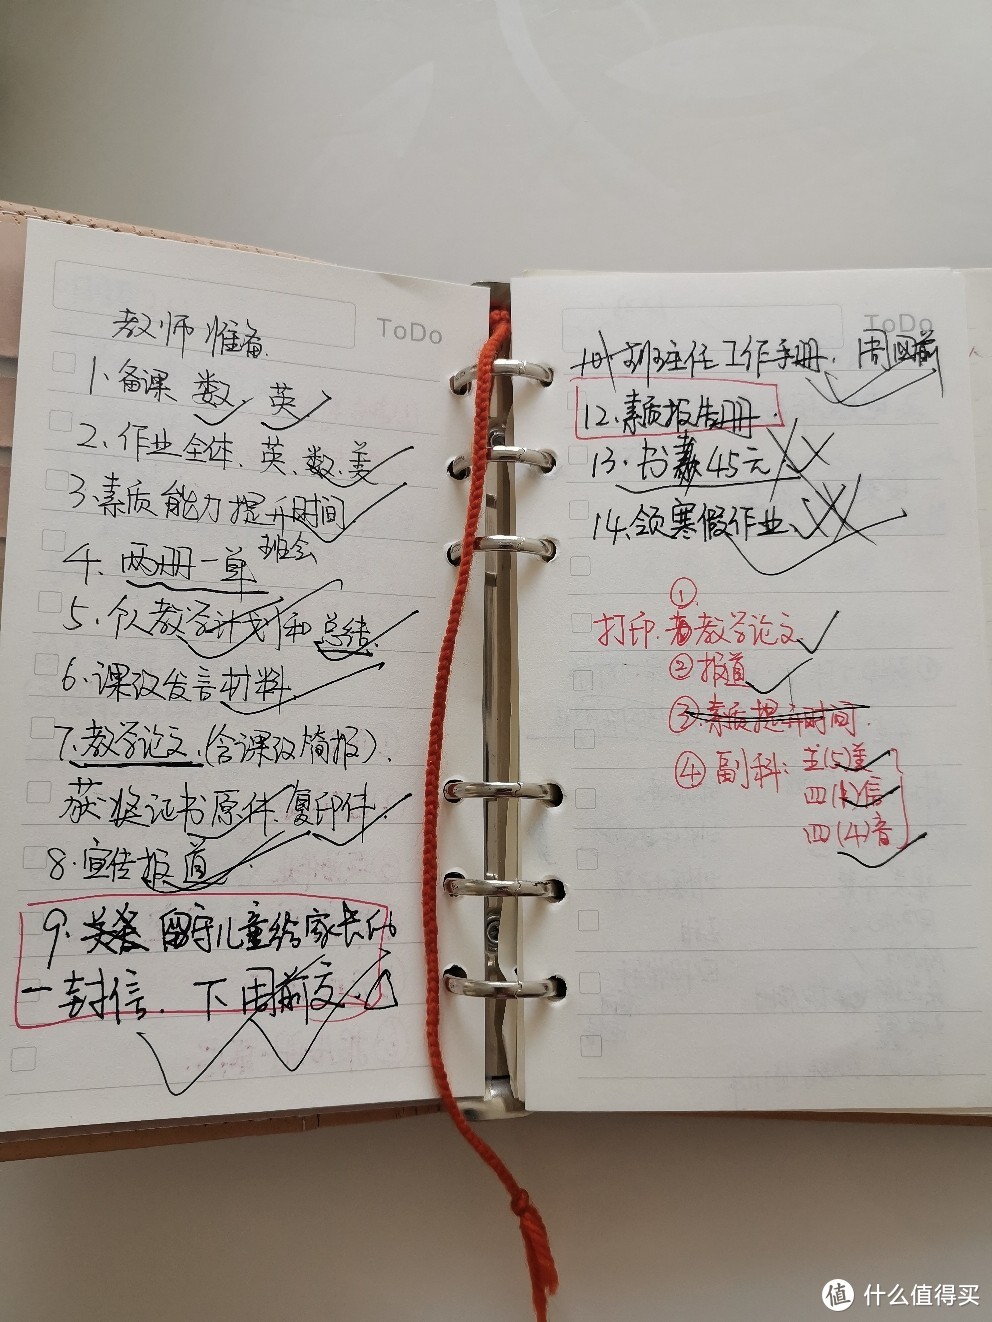 ToDo
教师准备
1、备课 数、英
2、作业全体、英、数、美
3、素质能力提升时间
班会
4、两册一单
5、个人教学计划和总结
6、课改发言材料
7、教学论文(含课改简报)、
获奖证书原件、复印件
8、宣传报道
9、留守儿童给家长的
一封信、下周前交
ToDo
班主任工作手册、周四前
12、素质报告册
13、书 45元
14、领寒假作业
①
打印:教学论文
②报道
③素质提升时间
④副科:
美
四()信
四(4)音
值 什么值得买